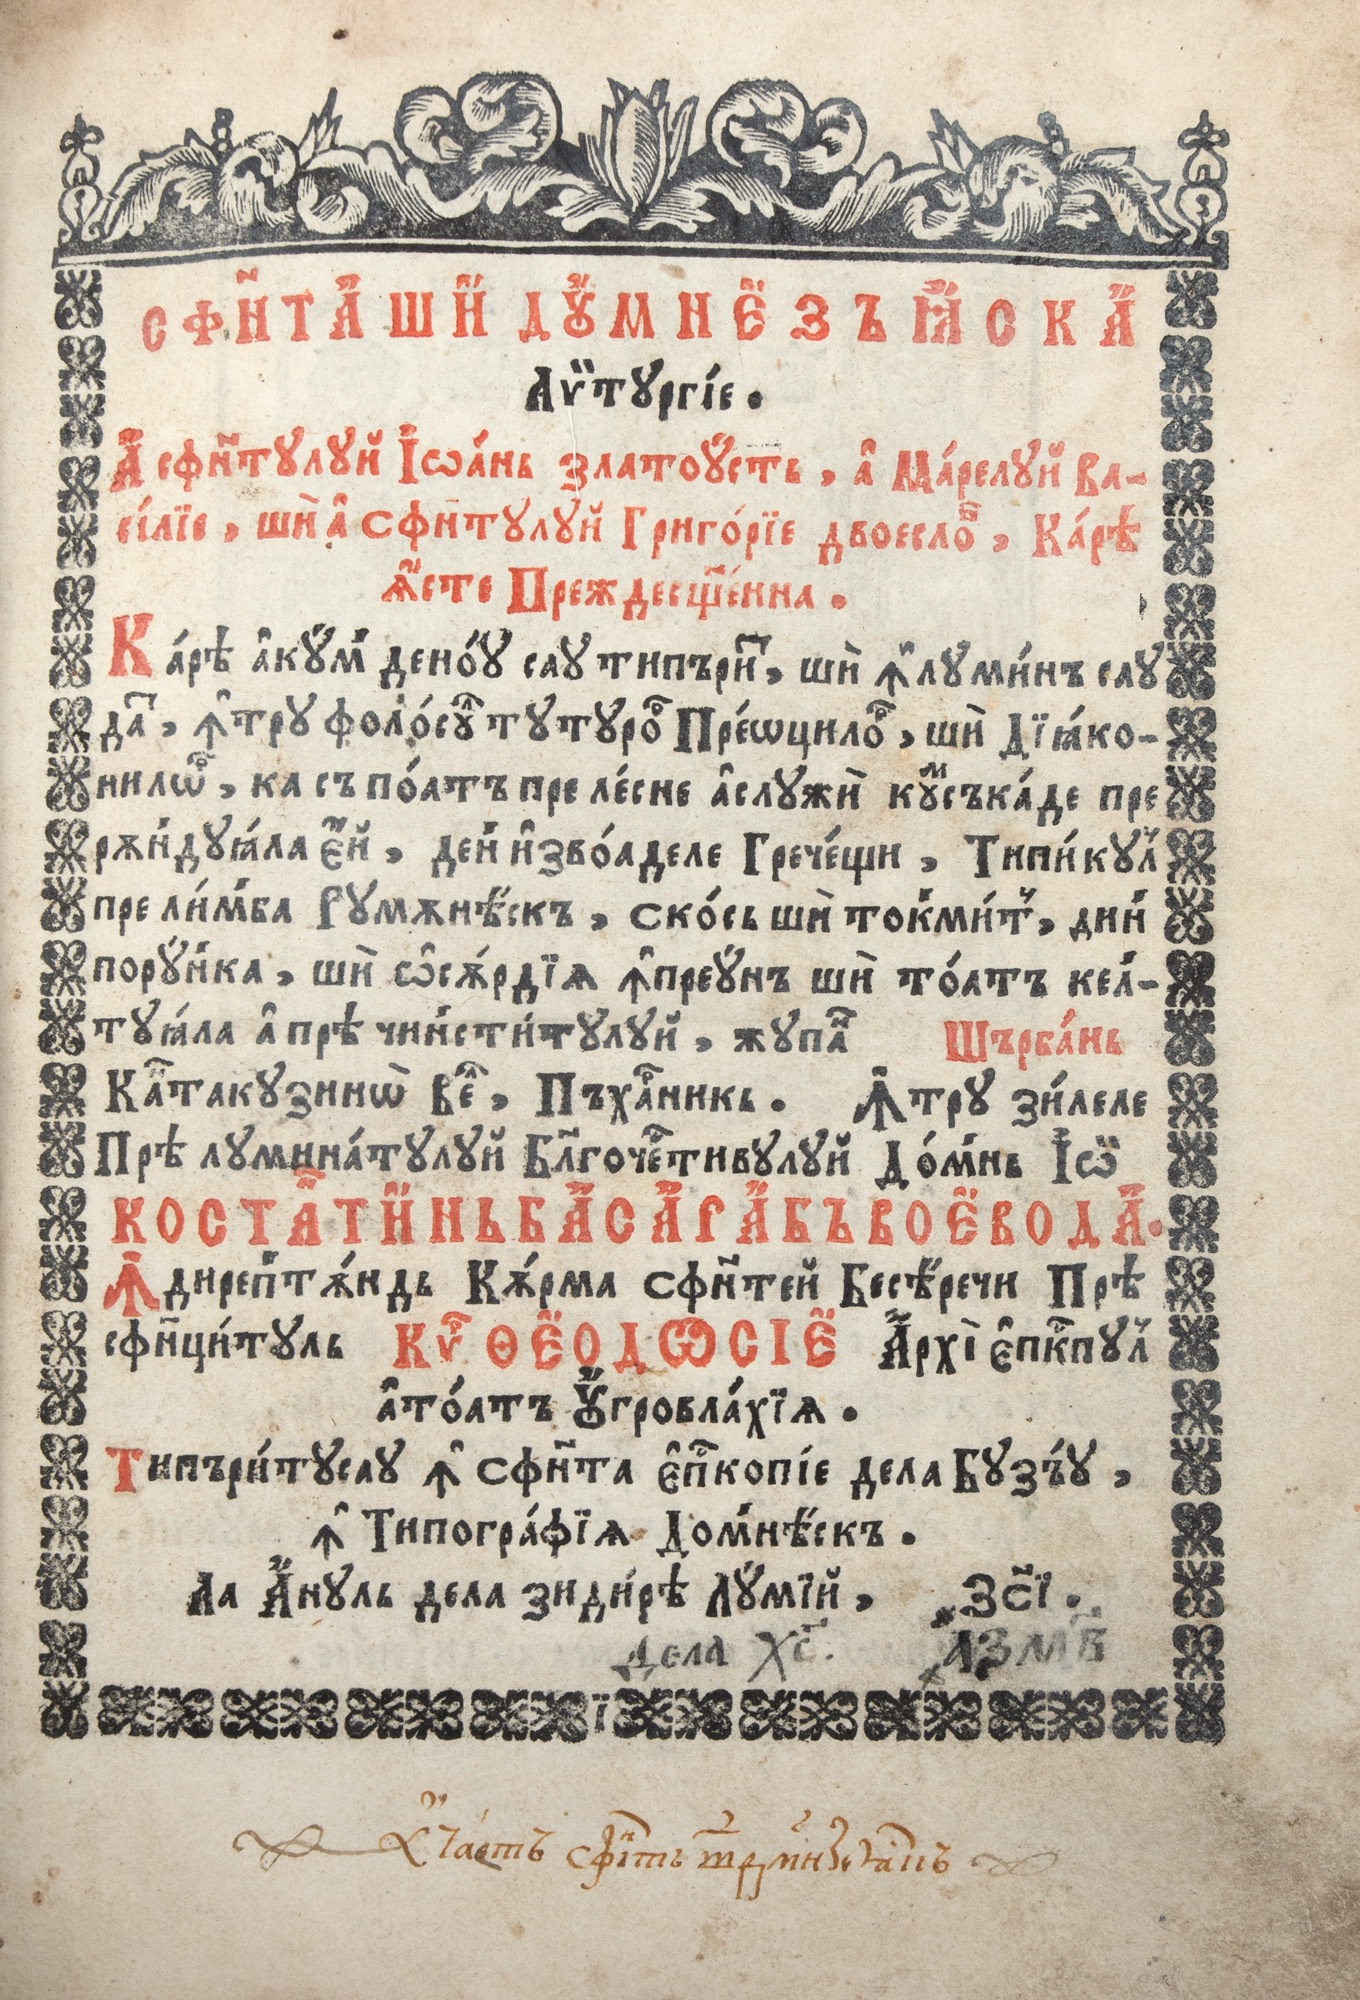 Сфн҃та ши Дꙋмнеꙁъꙗска
Лѵтꙋргі́е.
А сфн҃тꙋлꙋй Іѡа́нь Златоꙋсть, а Ма́релꙋй Ва-
сі́лїе, шѝ а Сфн҃тꙋлꙋй Григо́рїе двоесло́в, Ка́рѣ
ꙗсте Преждесщ҃е́нна.
Ка́рѣ акꙋм дено́ꙋ саꙋ типъри́т, шѝ ꙟ лꙋми́нъ саꙋ
дат, ꙟтрꙋ фоло́сꙋл тꙋтꙋро́р Прео́ѡцилор, шѝ Дїꙗ́ко-
нилѡр, ка съ по́атъ пре ле́сне а слꙋжѝ кꙋм съ ка́де пре
рѫндꙋꙗ́ла ей, ден иꙁво́аделе Грече́щи, Типи́кꙋл
пре ли́мба Рꙋмѫнѣскъ, ско́сь шѝ токми́т, дин
порꙋнка, шѝ ѡсѫ́рдїѧ ꙟпреꙋнъ шѝ то́атъ кел-
тꙋꙗ́ла а прѣ чинсти́тꙋлꙋй, жꙋпан Шърба́нь
Кантакꙋꙁинѡ̀ вел, Пъха́рникь. Ꙟтрꙋ ꙁи́леле
Прѣ лꙋмина́тꙋлꙋй Бл҃гоче́стивꙋлꙋй До́мнь Іѡ̑
Костантинь Басарабъ Воевода.
Ꙟдирептѫндь Кѫ́рма Сфн҃тей Бесѣ́речи Прѣ
сфн҃ци́тꙋль Кѵр Ѳеѡдѡсіе Архі̀ епⷭ҇кпꙋл
а то́атъ Оꙋгровла́хїѧ.
Типъри́тꙋсаꙋ ꙟ Сфн҃та епⷭ҇копі́е дела Бꙋꙁъ́ꙋ,
ꙟ Типогра́фїѧ Домнѣскъ.
Ла Анꙋль дела ꙁиди́рѣ Лꙋмїй, ҂ꙁс҃ї.
дела Хс҃. ҂аꙁмв
ї